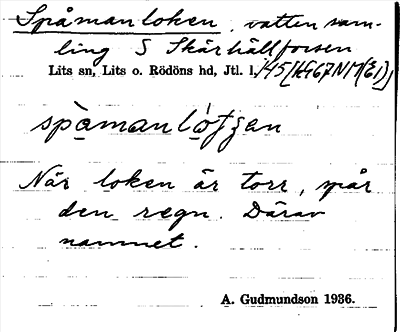 Spåmanloken, vattensam-
ling S Skärhällforsen
Lits sn, Lits o. Rödöns hd, Jtl. l.
När loken är torr, spår
den regn. Därav
namnet.
A. Gudmundson 1936.